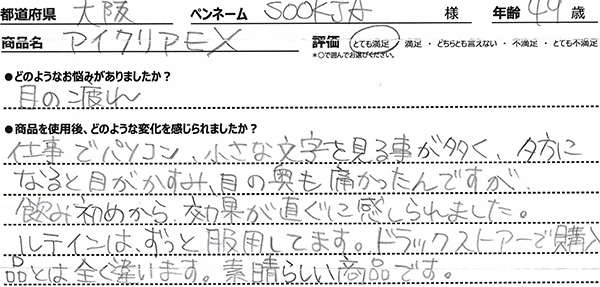 都道府県 大阪 ペンネーム SOOKJA 様 年齢 49 歳
商品名 アイクリアEX 評価 とても満足 ・ 満足 ・ どちらとも言えない ・ 不満足 ・ とても不満足
*○で囲んでお選びください。
●どのようなお悩みがありましたか？
目の疲れ
●商品を使用後、どのような変化を感じられましたか？
仕事でパソコン、小さな文字を見る事が多く、夕方に
なると目がかすみ、目の奥も痛かったんですが
飲み初めから効果が直ぐに感じられました。
ルテインは、ずっと服用してます。ドラックストアーで購入
品とは全く違います。素晴らしい商品です。